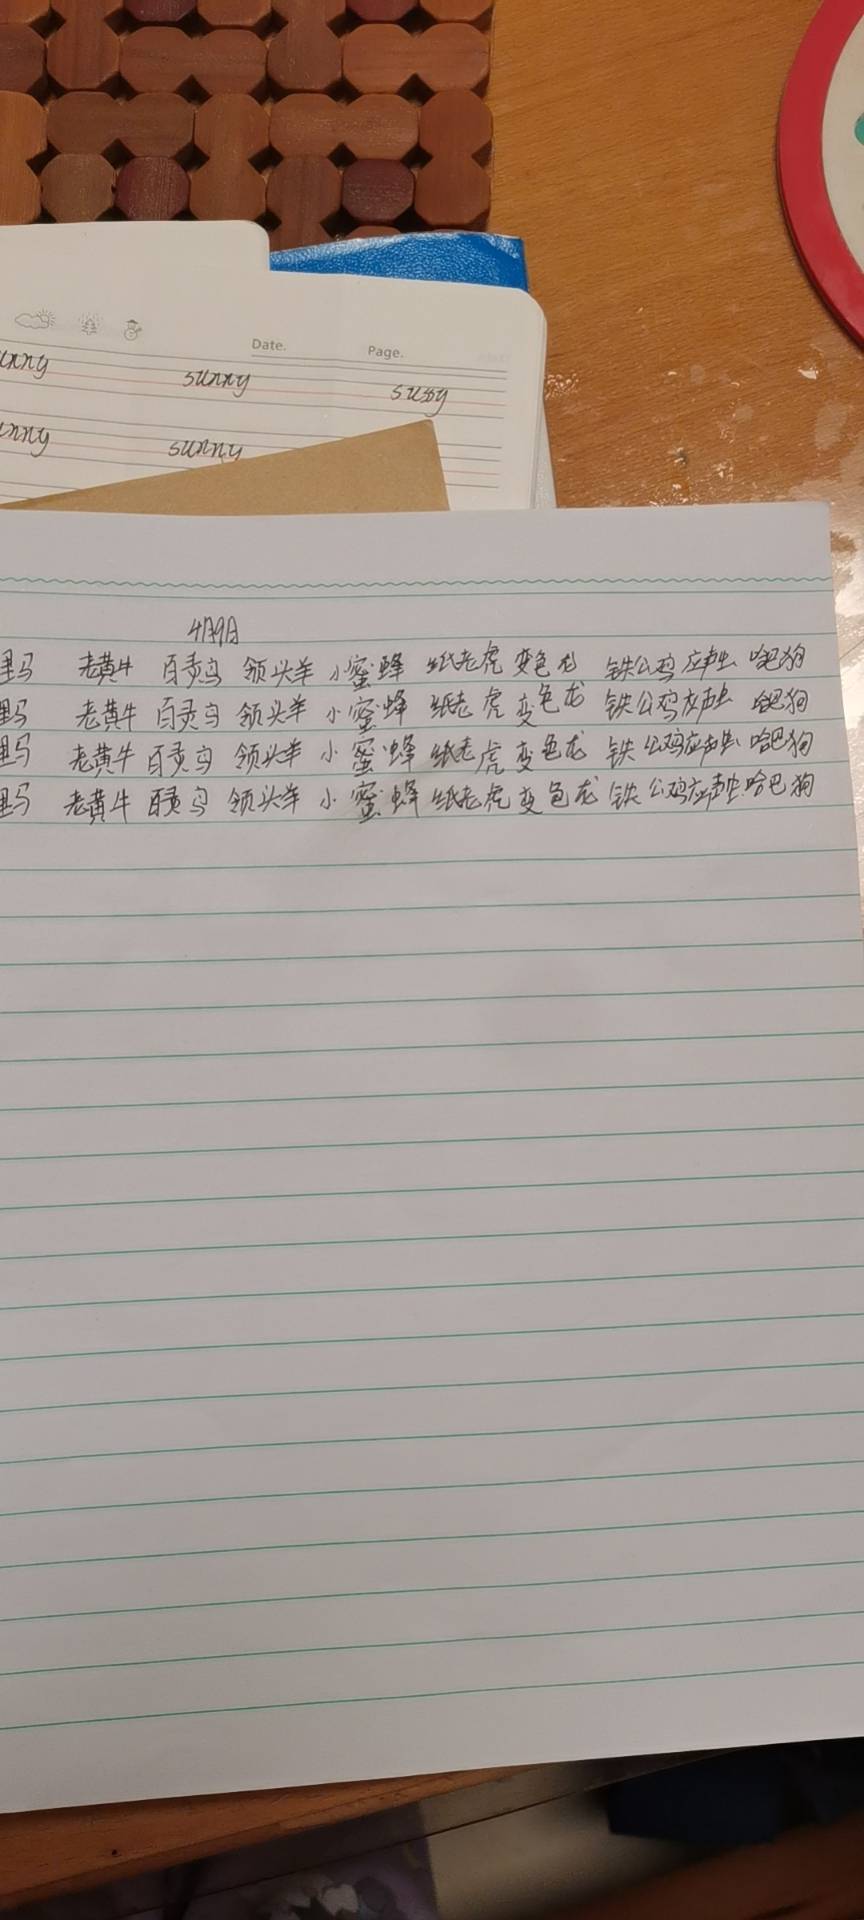 Date.
Page.
unny sunny sussy
unny sunny
4月9日
里马 老黄牛 百灵鸟 领头羊 小蜜蜂 纸老虎 变色龙 铁公鸡 应声虫 哈巴狗
里马 老黄牛 百灵鸟 领头羊 小蜜蜂 纸老虎 变色龙 铁公鸡 应声虫 哈巴狗
里马 老黄牛 百灵鸟 领头羊 小蜜蜂 纸老虎 变色龙 铁公鸡 应声虫 哈巴狗
里马 老黄牛 百灵鸟 领头羊 小蜜蜂 纸老虎 变色龙 铁公鸡 应声虫 哈巴狗